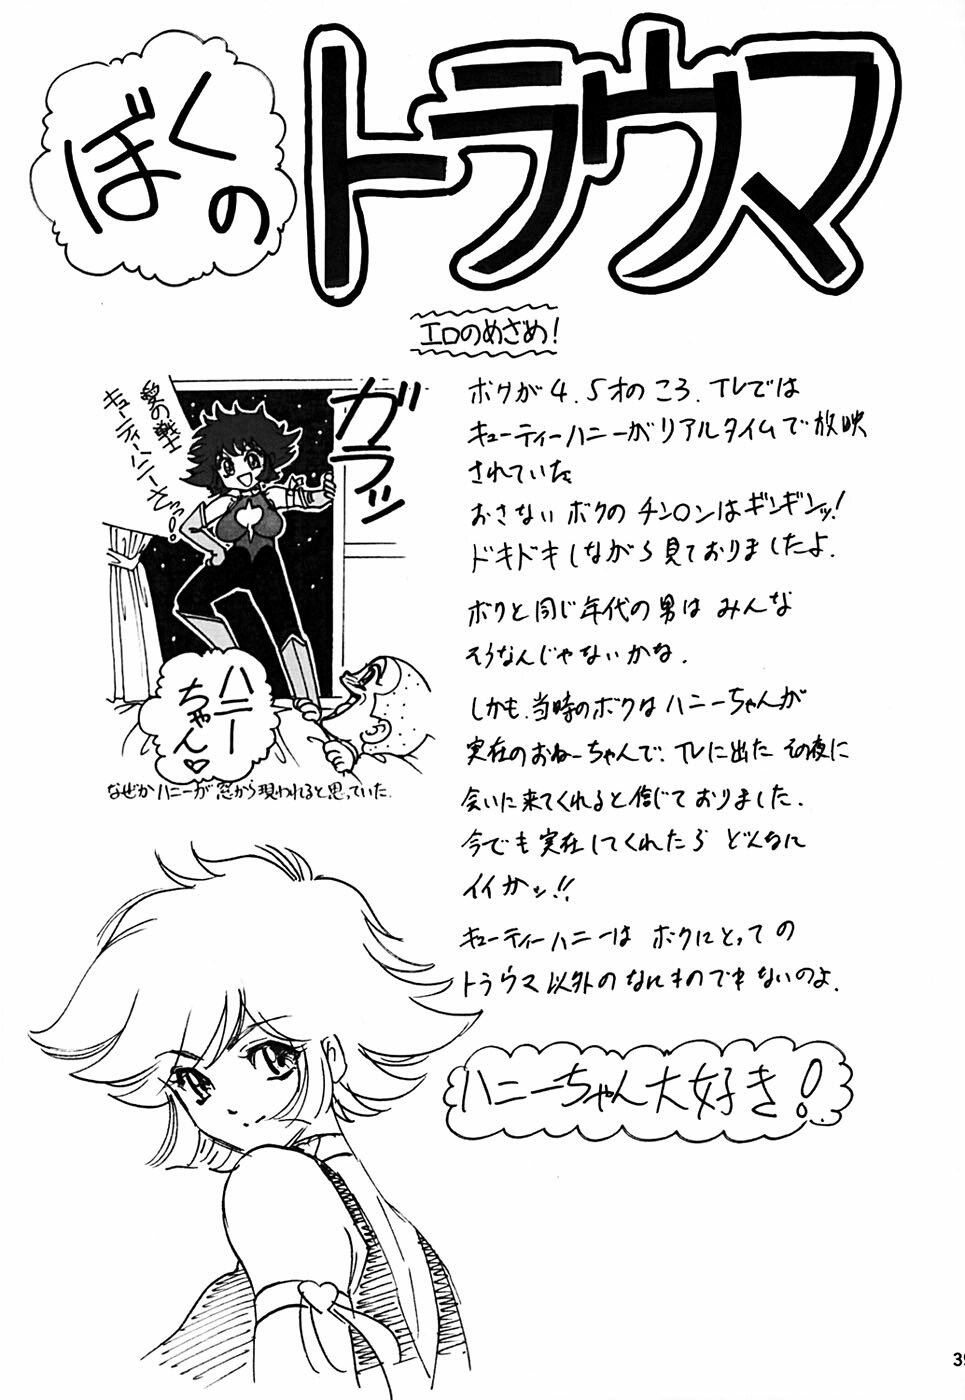 ぼくの
トラウマ
エロのめざめ!
愛の戦士
キューティーハニーさっ!
ガラッ
ハニー
ちゃん♡
なぜかハニーが窓から現われると思っていた.
ボクが4.5才のころ、TVでは
キューティーハニーがリアルタイムで放映
されていた
ドキドキしながら見ておりましたよ.
ボクと同じ年代の男はみんな
そうなんじゃないかな.
しかも、当時のボクはハニーちゃんが
実在のおねーちゃんで、TVに出たその夜に
会いに来てくれると信じておりました.
今でも実在してくれたらどんなに
イイかッ!!
キューティーハニーはボクにとっての
トラウマ以外のなにものでもないのよ.
ハニーちゃん大好き!